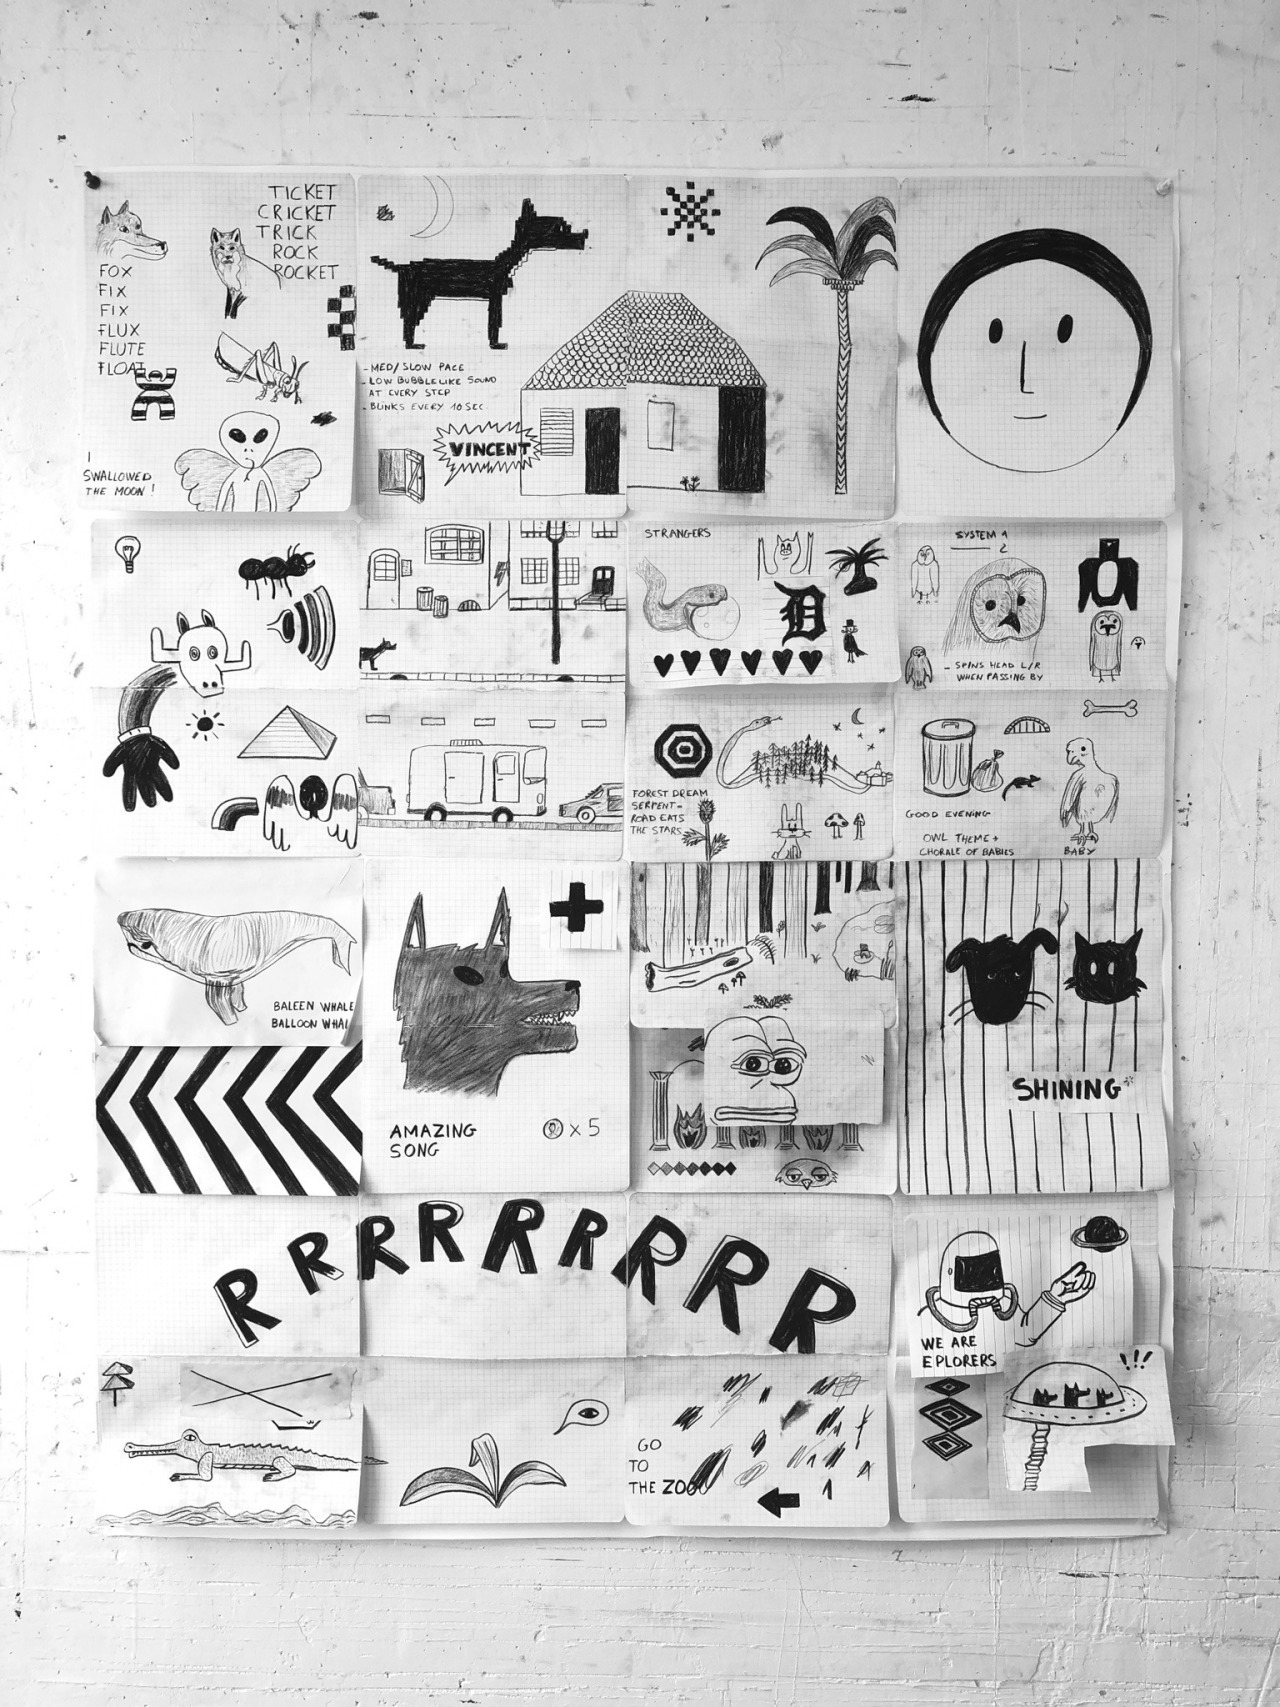 TICKET
CRICKET
TRICK
ROCK
ROCKET
FOX
FIX
FIX
FLUX
FLUTE
FLOAT
I
SWALLOWED
THE MOON !
- MED/SLOW PACE
- LOW BUBBLELIKE SOUND
AT EVERY STEP
- BLINKS EVERY 10 SEC
VINCENT
STRANGERS
D
SYSTEM 1
2
- SPINS HEAD L/R
WHEN PASSING BY
FOREST DREAM
SERPENT-
ROAD EATS
THE STARS
GOOD EVENING
OWL THEME +
CHORALE OF BABIES
BABY
BALEEN WHALE
BALLOON WHAL
AMAZING
SONG
x 5
SHINING
R R R R R R R R R
WE ARE
EPLORERS
!!!
GO
TO
THE ZOO
1